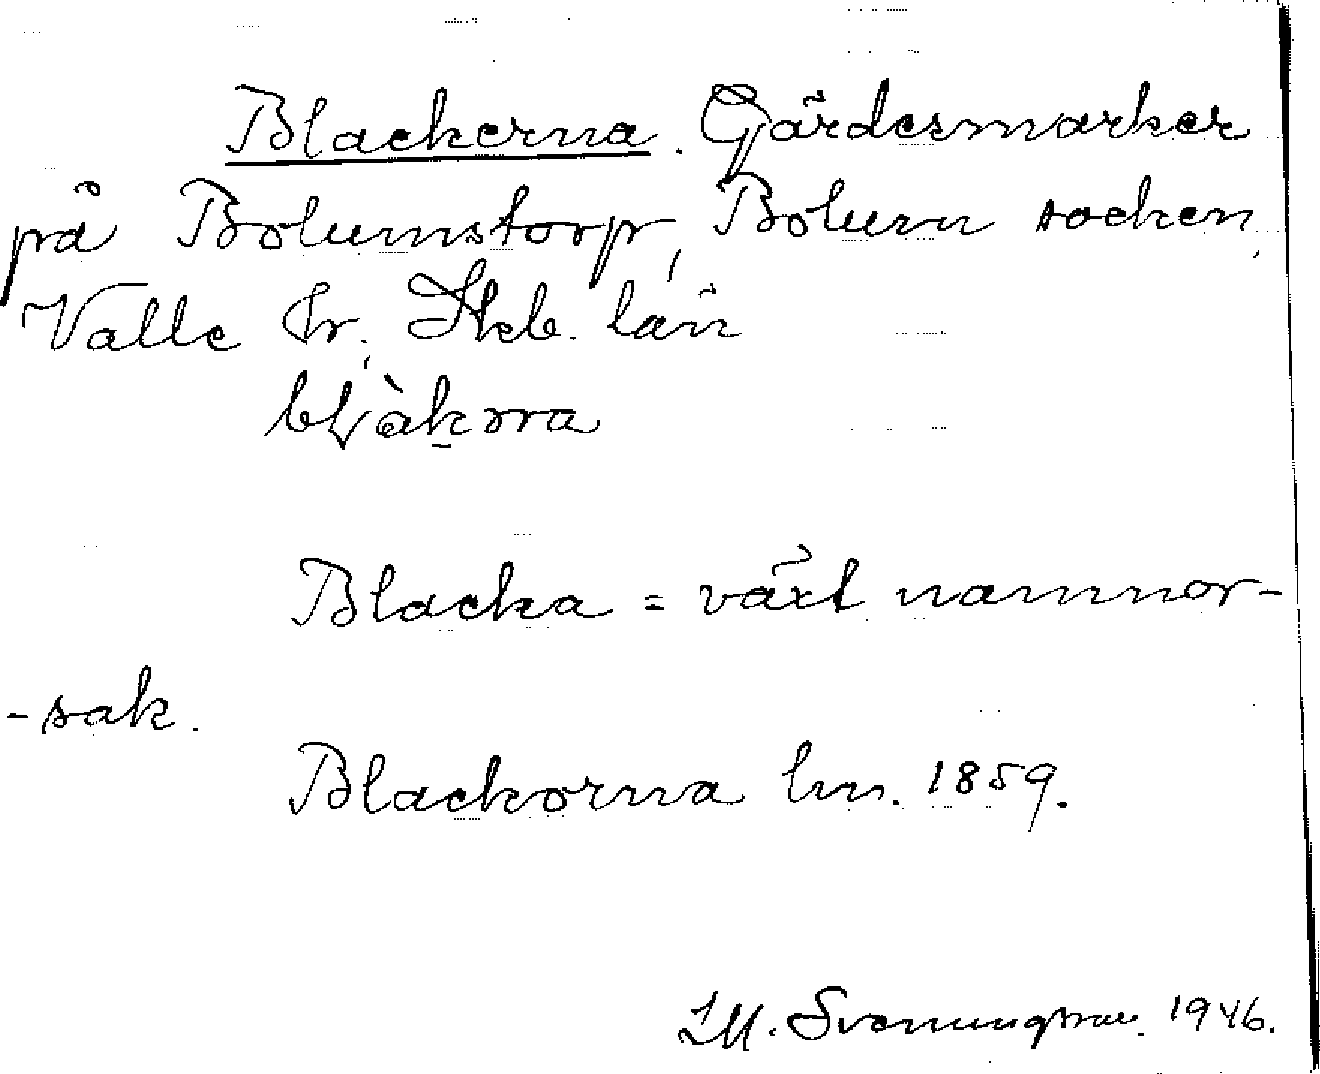 Blackerna. Gärdesmarker
på Bolumstorp, Bolum socken,
Valle hr, Skb. län
Blacka = växt namnor-
-sak.
Blackorna lm. 1859.
Svenungsson. 1946.